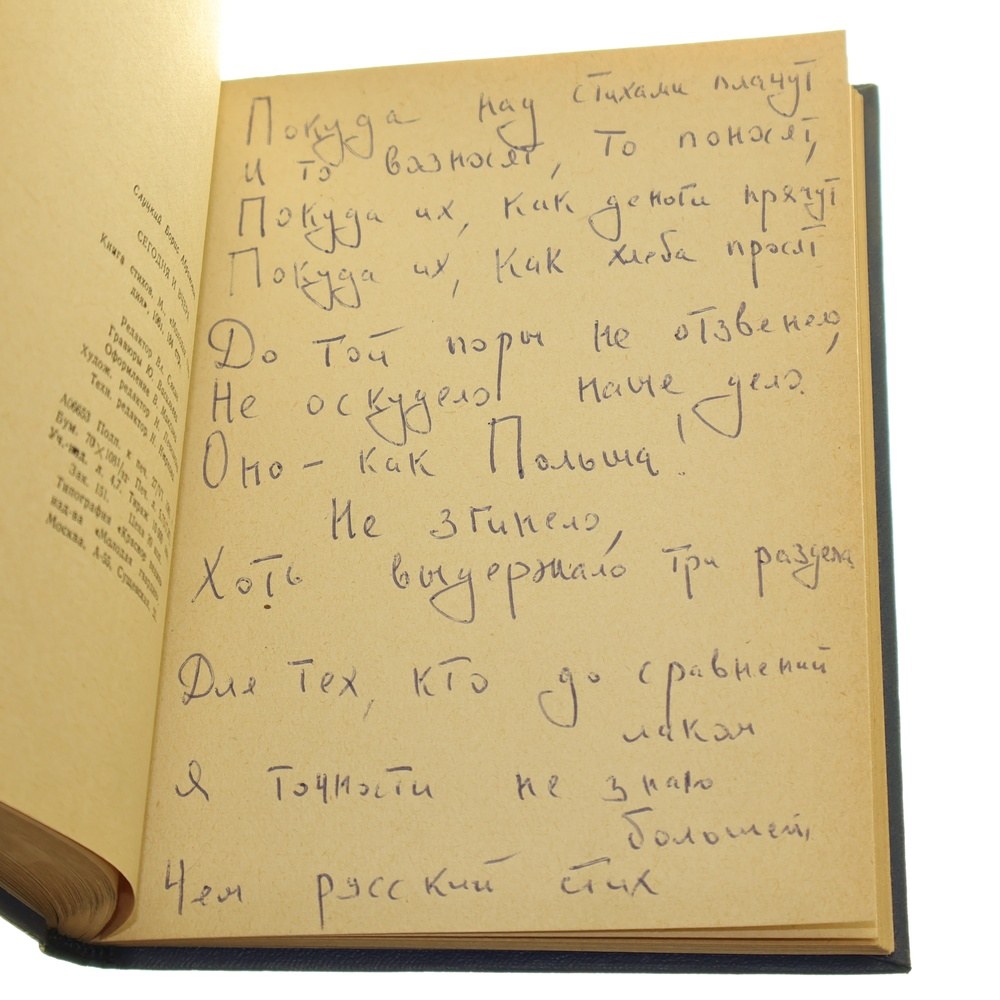 Слуцкий Борис
СЕГОДНЯ И ВЧЕРА
Книга стихов. М., «Молодая
1961. 184 стр.
Редактор Вл.
Гравюры Ю.
Оформление В.
Худож. редактор Н.
Техн. редактор Н.
А06653 Подп. к печ.
Бум. 70×108 1/32 Печ. л.
Уч.-изд. л. 4,7. Тираж
Зак. 151. Цена
Типография «Красное знамя»
изд-ва «Молодая гвардия».
Москва, А-55, Сущевская, 21.
Покуда над стихами плачут
И то возносят, то поносят,
Покуда их, как деньги прячут
Покуда их, как хлеба просят
До той поры не отзвенело,
Не оскудело наше дело.
Оно – как Польша!
Не згинело,
Хоть выдержало три раздела
Для тех, кто до сравнений
лаком
Я точности не знаю
большей,
Чем русский стих